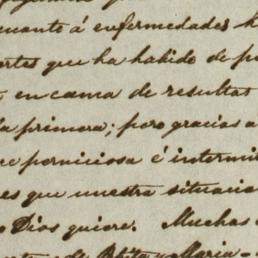 cuanto á enfermedades h
rtes que ha habido de pe
en cama de resultas
la primera; pero gracias a
re perniciosa é intermi
es que nuestra situacio
o Dios quiere. Muchas
de Pepita y Maria-